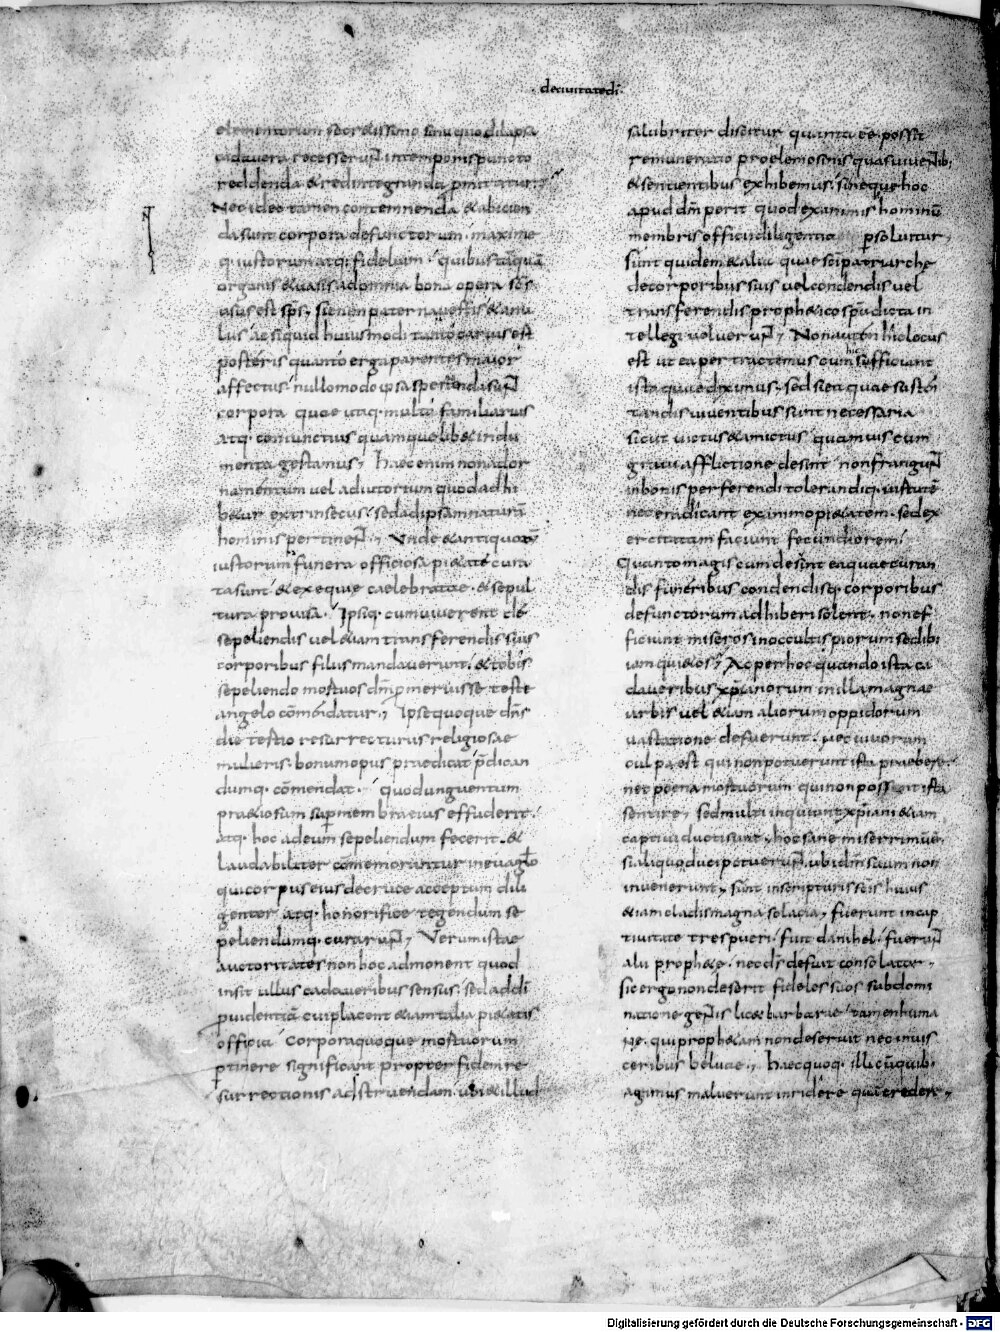 deciuitatedi
elementorum secretissimo sinu quo dilapsa
cadauera recesserunt in temporis puncto
reddenda & redintegranda
Nec ideo tamen contemnenda & abicien
da sunt corpora defunctorum. maxime
q. iustorum atq; fidelium. quibus taquā
organis & uasis ad omnia bona opera scs
usus est sps, si enim paterna uestis & anu
lus ac siquid huiusmodi tanto carius est
posteris quanto erga parentes maior
affectus. nullomodo ipsa spernenda sunt
corpora quae utaq; multo familiarius
atq; coniunctius quam quelib& indu
menta gestamus, haec enim non ad or
namentum uel adiutorium quod adhi
b&ur extrinsecus. sed ad ipsam naturā
hominis pertinent, Unde & antiquorum
iustorum funera officiosa pi&ate cura
ta sunt & exequie caelebratae & sepul
tura prouisa. Ipsiq; cum uiuerent de
sepeliendis uel &iam transferendis suis
corporibus filiis mandauerunt. & tobis
sepeliendo mortuos dnm pmeruisse teste
angelo comendatur, Ipse quoque dns
die tertio resurrecturus religiosae
mulieris. bonum opus praedicat pdican
dumq; comendat. quod unguentum
pr&iosum sup membra eius effuderit.
atq; hoc ad eum sepeliendum fecerit. &
laudabiliter comemorantur in euaglo
qui corpus eius de cruce acceptum dili
genter atq; honorifice tegendum se
peliendumq; curarunt, Verum istae
auctoritates non hoc admonent quod
insit ullus cadaueribus sensus. sed ad di
puidentiā cui placent &iam talia pi&atis
officia corpora quoque mortuorum
ptinere significant propter fidem re
surrectionis adstruendam. ubi & illud
salubriter discitur quanta ee possit
remuneratio pro elemosinis quas uiuentib;
& sentientibus exhibemus. si neque hoc
apud dm perit quod exanimis hominū
membris officii diligentia psoluitur,
sunt quidem & alia quae sci patriarche
de corporibus suis uel condendis uel
transferendis proph&ico spu dicta in
tellegi uoluerunt, Non autem hic locus
est ut ea per tractemus cum sufficiant
hic
ista quae diximus. sed si ea quae susten
tandis uiuentibus sunt necessaria
sicut uictus & amictus quamuis cum
graui afflictione desint non frangunt
in bonis perferendi tolerandiq; uirtutē
nec eradicant ex animo pi&atem. sed ex
ercitatam faciunt fecundiorem.
Quanto magis cum desint ea quae curan
dis funeribus condendisq; corporibus
defunctorum adhiberi solent. non ef
ficiunt miseros in occultis piorum sedibi
iam qui&os, Ac per hoc quando ista ca
daueribus xpianorum in illa magnae
urbis uel &iam aliorum oppidorum
uastatione defuerunt. nec uiuorum
culpa est qui non potuerunt ista praebere.
nec poena mortuorum qui non possunt ista
sentire, sed multi inquiunt xpiani &iam
captiui ducti sunt, hoc sane miserrimum e
si aliquo duci potuerunt ubi dm suum non
inuenerunt, sunt in scripturis scis huius
&iam cladis magna solacia, fuerunt in cap
tiuitate tres pueri. fuit danihel. fuerunt
alii proph&e. nec ds defuit consolator,
Sic ergo non deserit fideles suos sub domi
natione gentis lic& barbarae tamen huma
ne. qui proph&am non deseruit nec in uis
ceribus beluae. haec quoq; illi cum quib;
agimus malunt inridere quā credere,